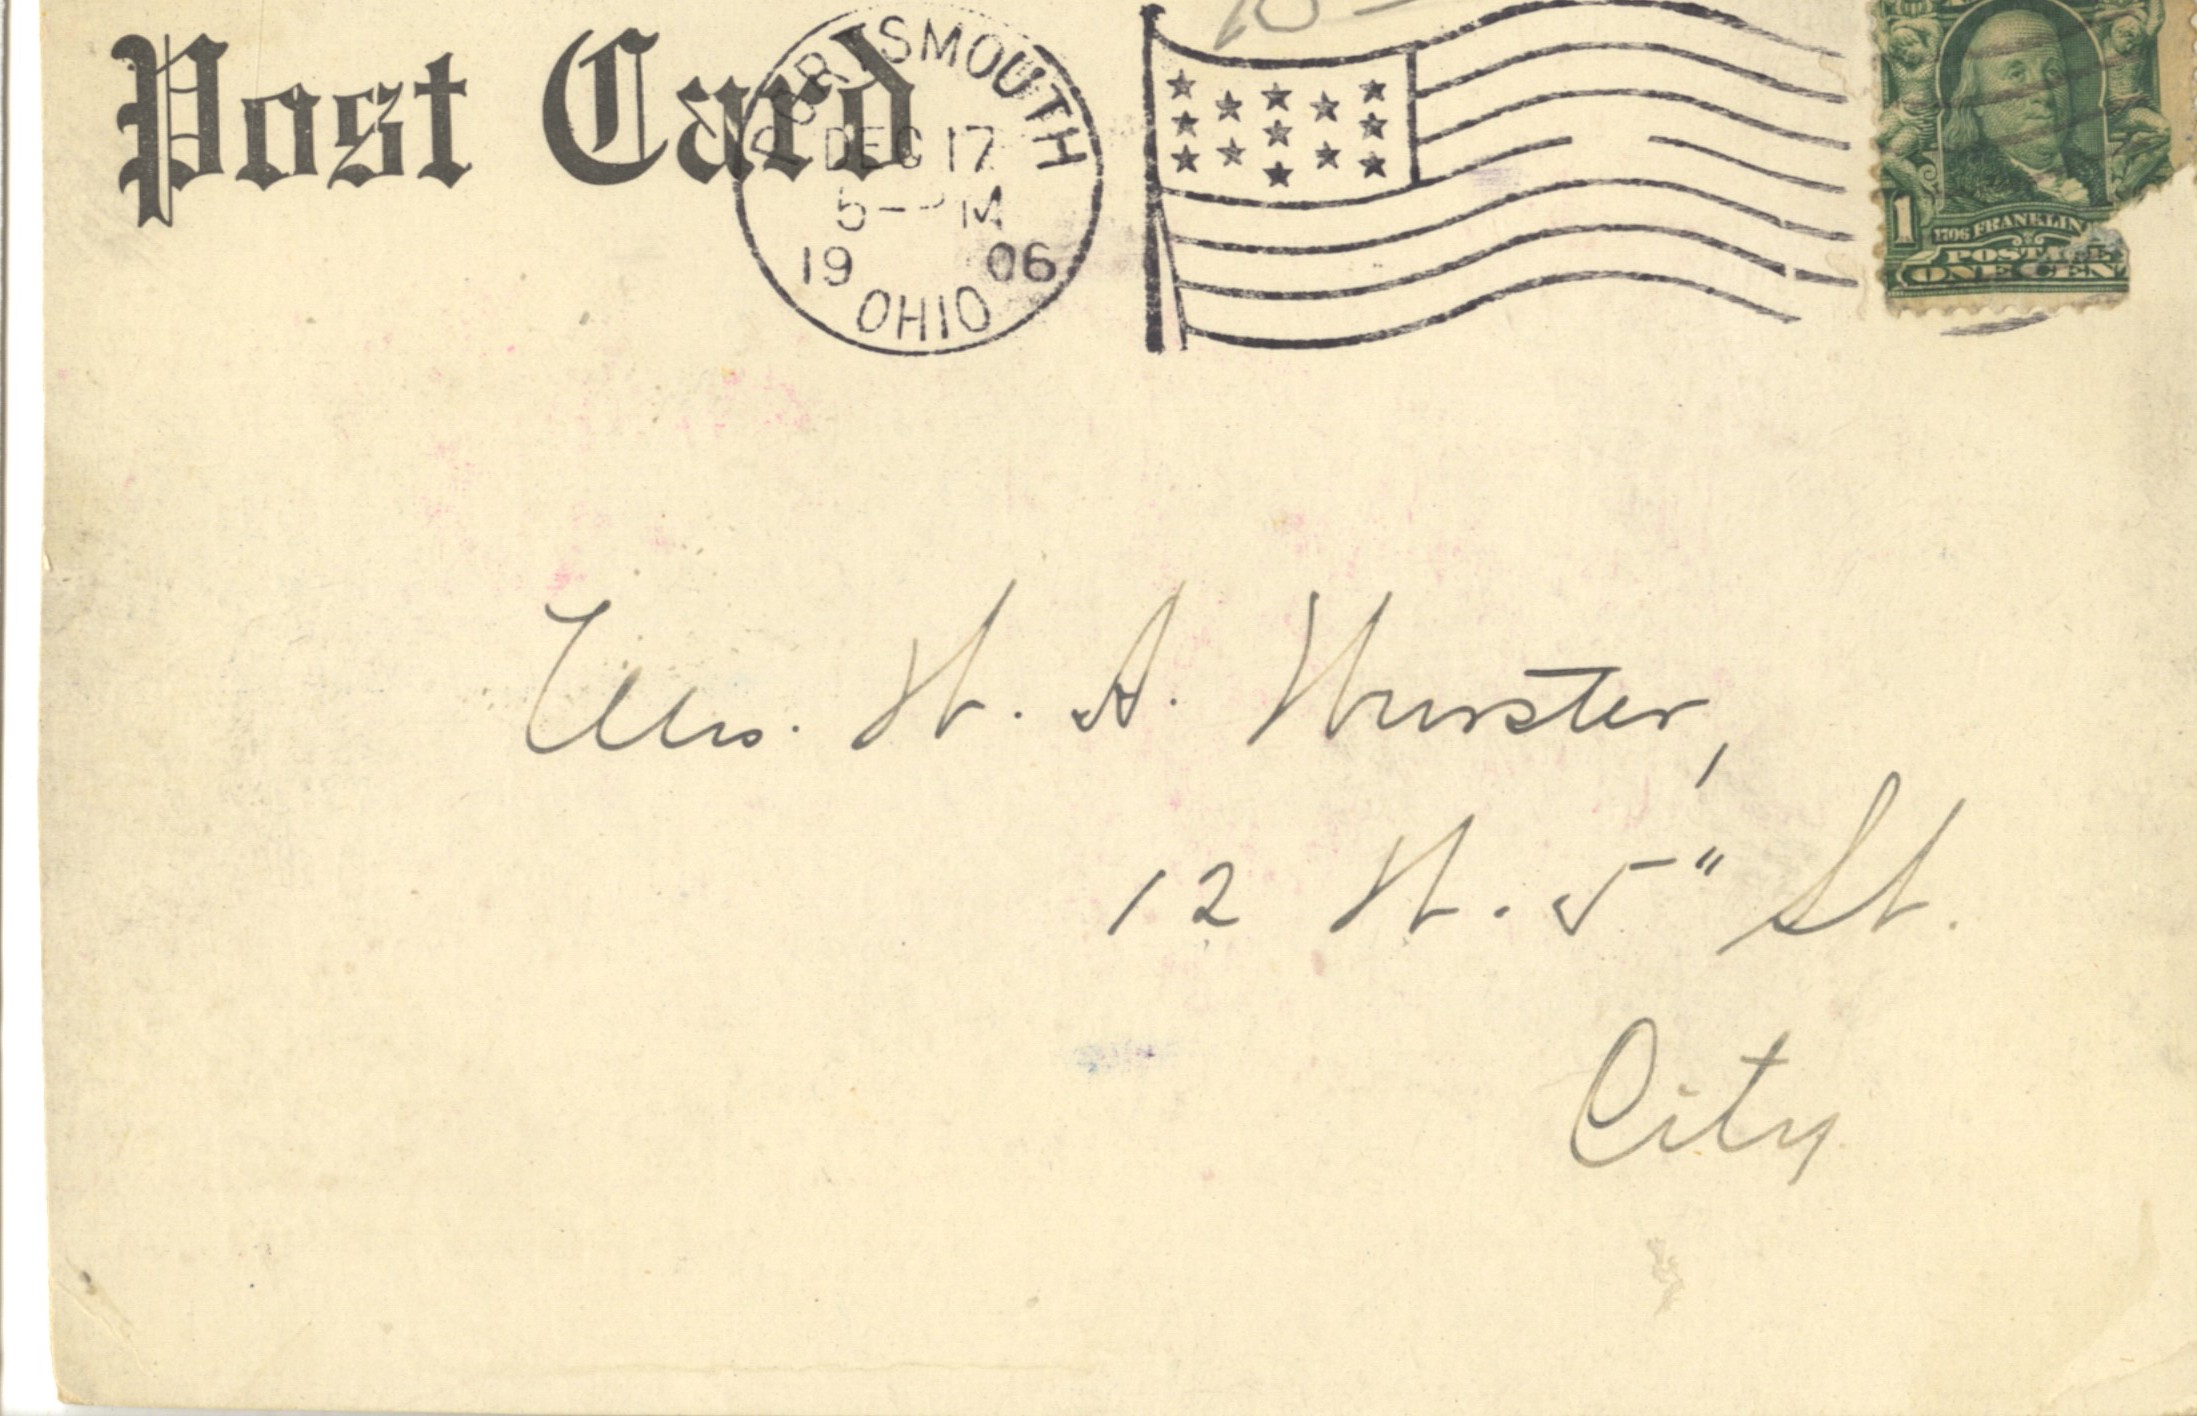 Post Card
PORTSMOUTH
DEC 17
5-PM
1906
OHIO
1
1706 FRANKLIN
POSTAGE
ONE CEN
Mrs. W. A. Wurster,
12 W. 5" St.
City